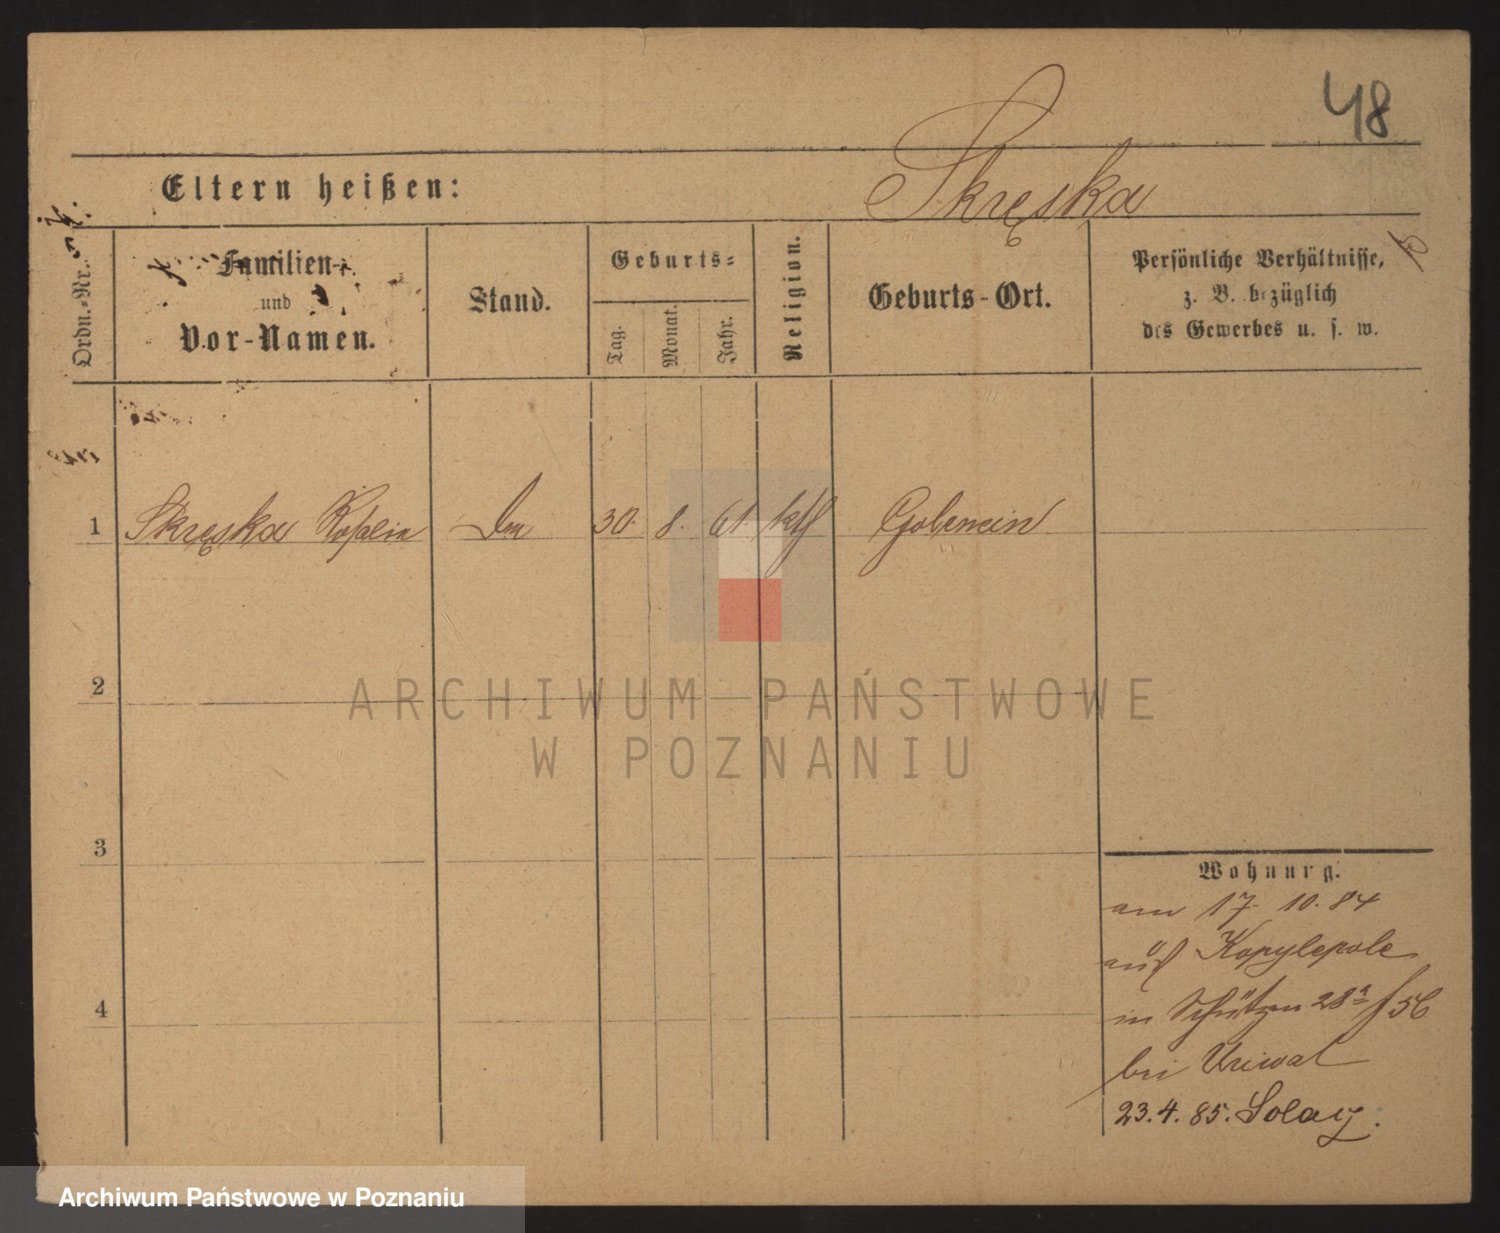 48
Skręska
Eltern heißen:
Ordn.-Nr.
Familien-
und
Vor-Namen.
Stand.
Geburts-
Tag.
Monat.
Jahr.
Religion.
Geburts-Ort.
Persönliche Verhältnisse,
z. B. bezüglich
des Gewerbes u. s. w.
1 Skręska Rosalie 30. 8. 61 kth
2
ARCHIWUM PAŃSTWOWE
W POZNANIU
3
Wohnung.
am 17. 10. 84
aus Kopylepole
4
in Schützen 28a
bei
23.4.85. Solacz.
Archiwum Państwowe w Poznaniu